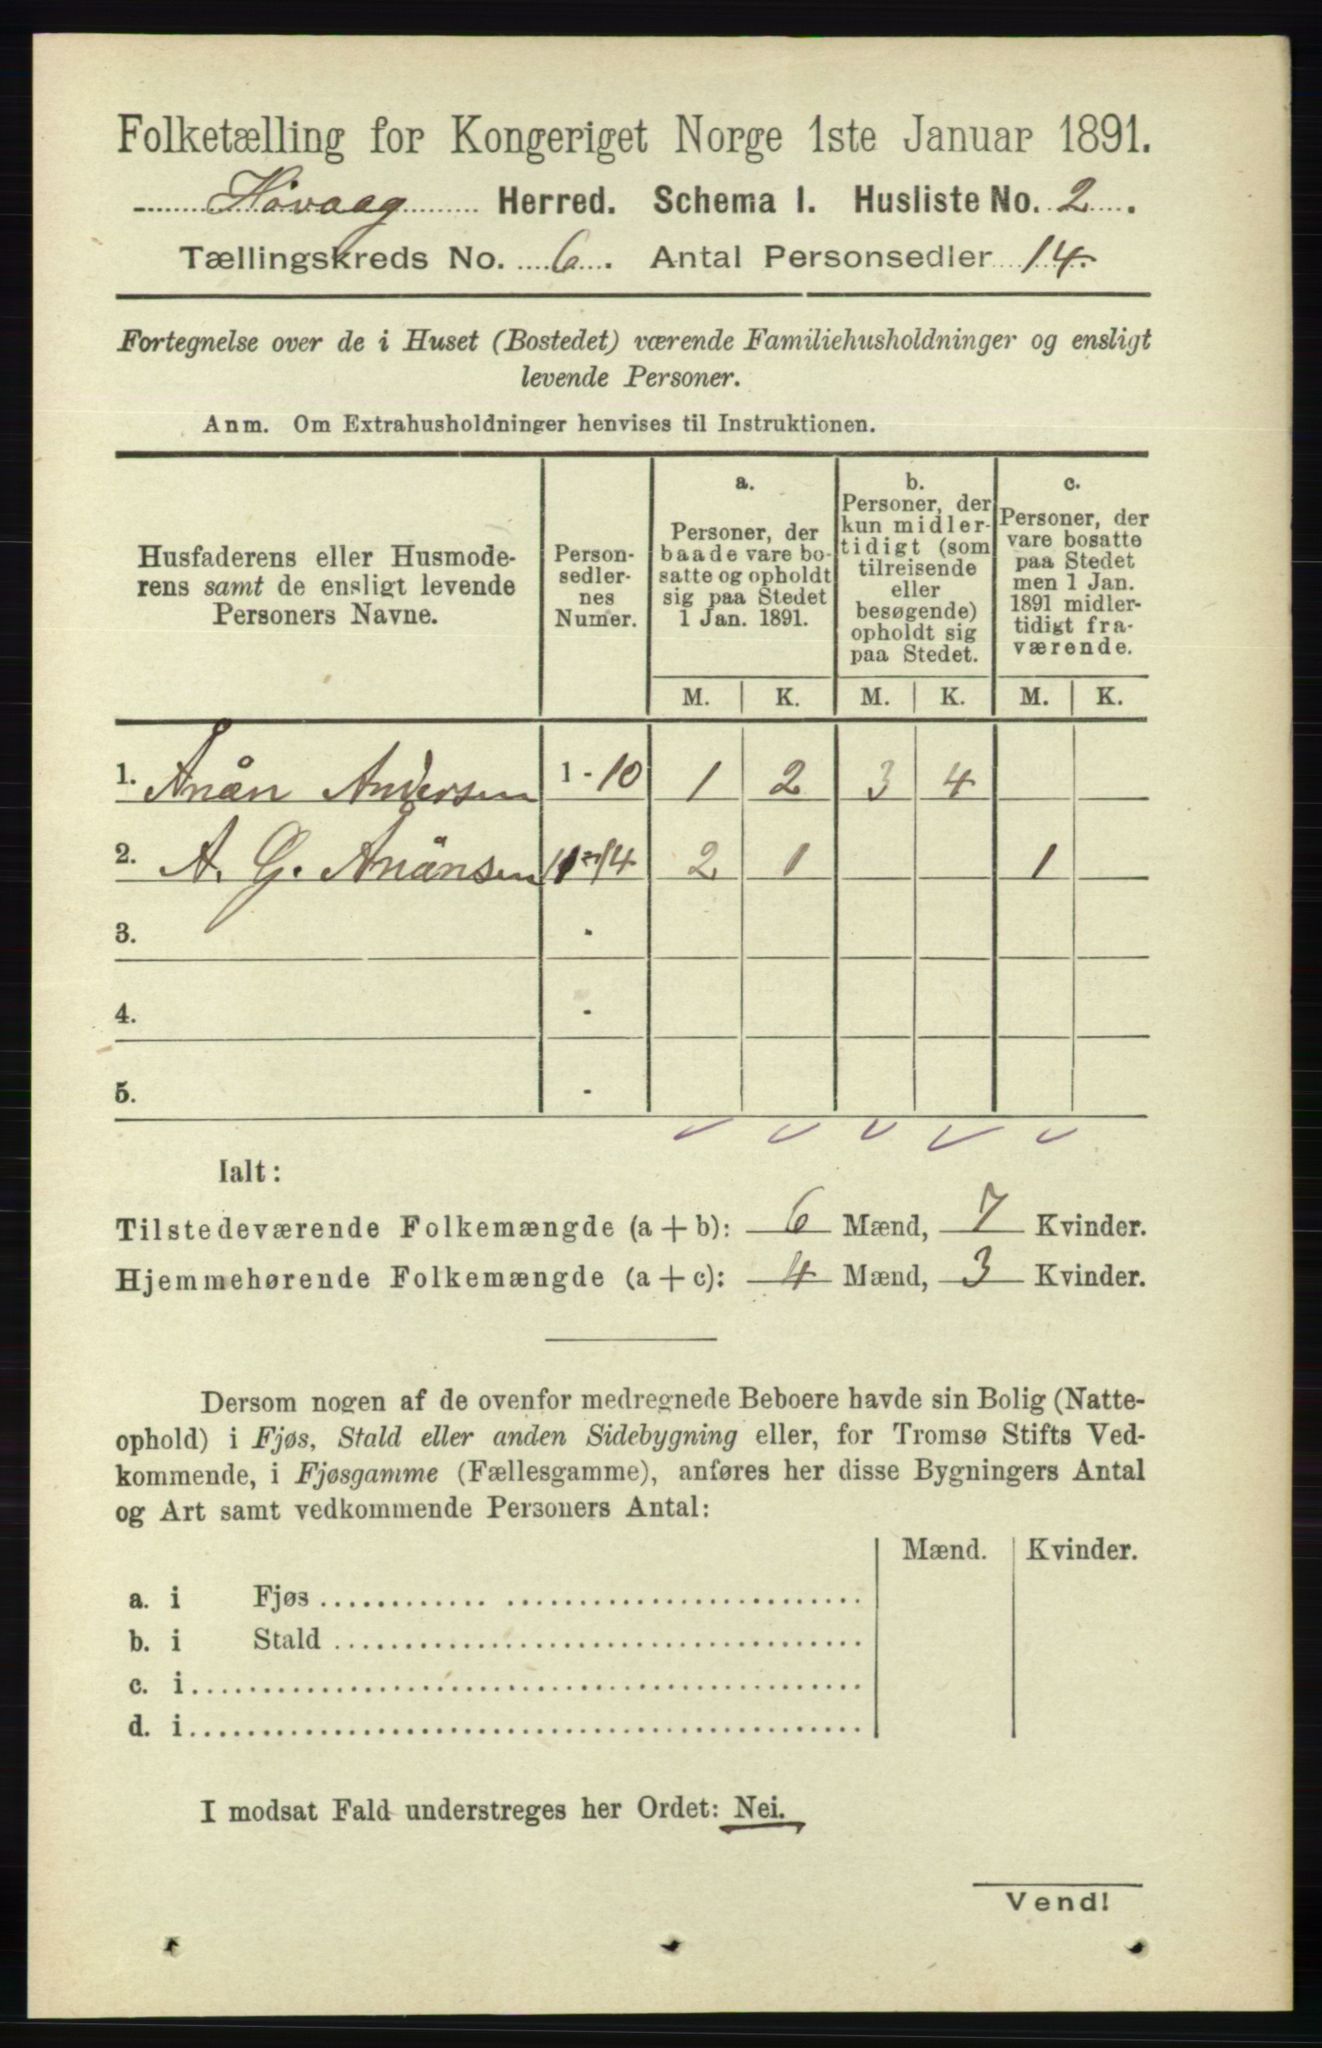 Folketælling for Kongeriget Norge 1ste Januar 1891.
Høvaag Herred. Schema I. Husliste No. 2.
Tællingskreds No. 6. Antal Personsedler 14.
Fortegnelse over de i Huset (Bostedet) værende Familiehusholdninger og ensligt
levende Personer.
Anm. Om Extrahusholdninger henvises til Instruktionen.
Husfaderens eller Husmode-
rens samt de ensligt levende
Personers Navne.
Person-
sedler-
nes
Numer.
a.
Personer, der
baade vare bo-
satte og opholdt
sig paa Stedet
1 Jan. 1891.
b.
Personer, der
kun midler-
tidigt (som
tilreisende
eller
besøgende)
opholdt sig
paa Stedet.
c.
Personer, der
vare bosatte
paa Stedet
men 1 Jan.
1891 midler-
tidigt fra-
værende.
M. K. M. K. M. K.
1. Ånæn Andersen 1-10 1 2 3 4
2. A. G. Anånsen 11-14 2 1 1
3. -
4. -
5. -
Ialt:
Tilstedeværende Folkemængde (a + b): 6 Mænd, 7 Kvinder.
Hjemmehørende Folkemængde (a + c): 4 Mænd, 3 Kvinder.
Dersom nogen af de ovenfor medregnede Beboere havde sin Bolig (Natte-
ophold) i Fjøs, Stald eller anden Sidebygning eller, for Tromsø Stifts Ved-
kommende, i Fjøsgamme (Fællesgamme), anføres her disse Bygningers Antal
og Art samt vedkommende Personers Antal:
Mænd. Kvinder.
a. i Fjøs
b. i Stald
c. i
d. i
I modsat Fald understreges her Ordet: Nei.
Vend!